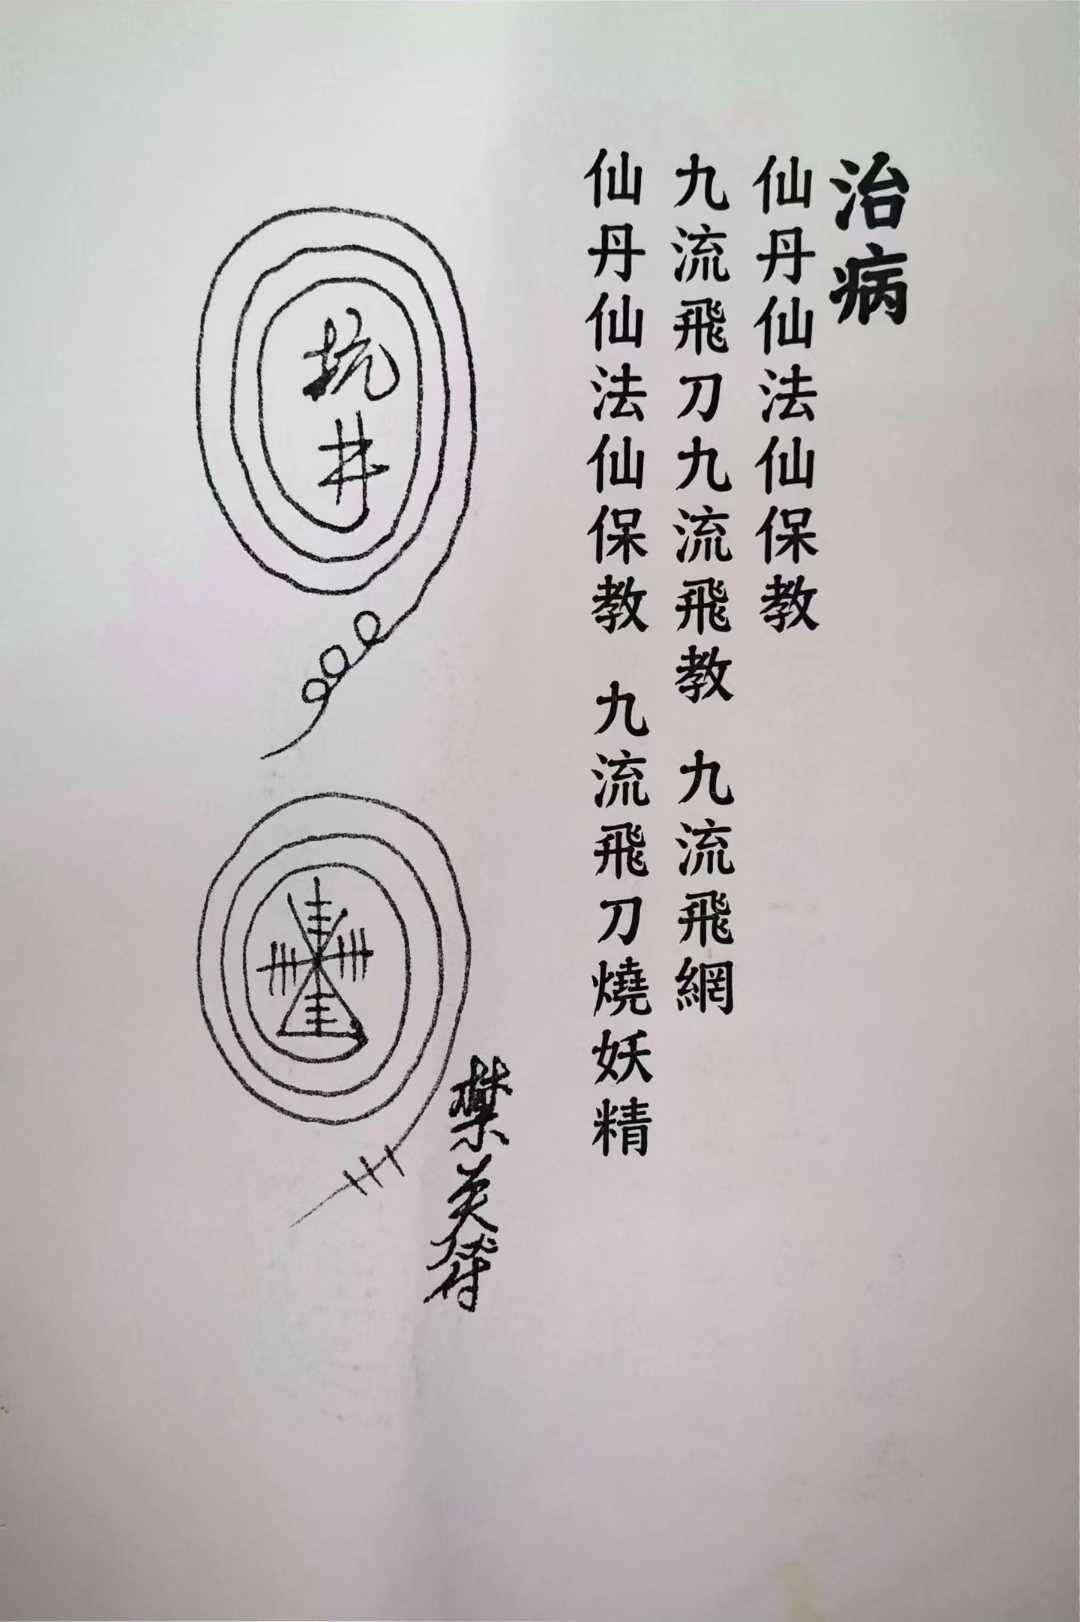 治病
仙丹仙法仙保教
九流飛刀九流飛教 九流飛網
仙丹仙法仙保教 九流飛刀燒妖精
抗井